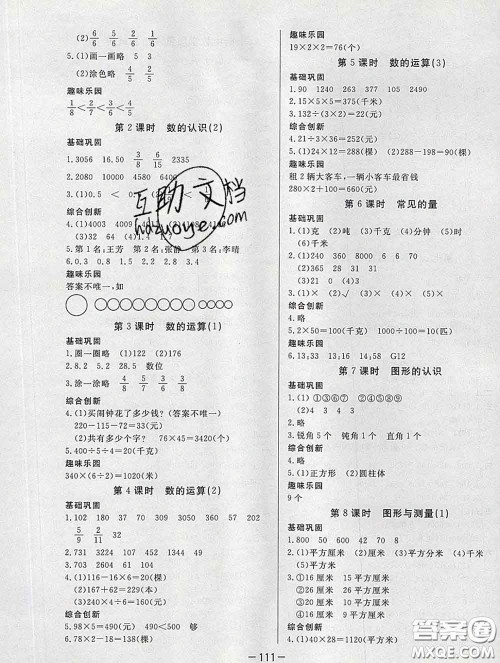 (2) 6/6 5/6 2/6
5.(1)画一画略
(2)涂色略 4/5 2/5
趣味乐园
1/8<1/6<1/5<1/2
第2课时 数的认识(2)
基础巩固
1.3056 16.50 3/8 6/15 2335
2.7080 10000 4580 6400
3.(1)0.5 <
综合创新
4.(1)4003 4009
(3)32 64 (4)1.4
5.第1名:王芳 第2名:张静 第3名:李晴
6.0.3 0.8 1.5 2.2 2.8 3.4
趣味乐园
答案不唯一,如
第3课时 数的运算(1)
基础巩固
1.圈一圈略 (1)122 (2)176
2.8.2 5.2 28.5 数位
3.涂一涂略 4/6 5/7 5/8 4/9
综合创新
4.(1)买闹钟花了多少钱?(答案不唯一)
220-115-72=33(元)
(2)共有多少个字? 76×45=3420(个)
5.400÷5÷4=20(千克)
趣味乐园
340×(6÷2)=1020(米)
第4课时 数的运算(2)
基础巩固
1.102 180 37 70 309 3050 360 78 202
5/9 2/11 32
2.731 3224 107 105 456 638
3.74 23 468
4.(1)116-16×6=20(棵)
(2)167+62=229(棵)
(3)240×4=960(千米)
综合创新
5.98×5=490(元) 490<500 够
6.78×2-18=138(棵)
趣味乐园
19×2×2=76(个)
第5课时 数的运算(3)
基础巩固
1.90 1240 263 377 105 2490
2.15×5×5=375(千米)
综合创新
4.21÷3×36=252(元)
5.(1)24×12=288(个) (2)288-198=90(棵)
趣味乐园
租2辆大客车,一辆小客车最省钱
280×2+100=660(元)
第6课时 常见的量
基础巩固
1.(1)克 (2)吨 (3)千克 (4)分钟 (5)时
(6)千米
3.(1)× (2)√ (3)× (4)×
综合创新
4.略
5.2×50=100(千克) 1000÷100=10(个)
趣味乐园
6.13;33 13:33 14:18 G12
第7课时 图形的认识
基础巩固
1.①③⑥⑦ ②④⑤⑧⑨
(2)4 3 4
3.锐角5个 钝角1个 直角1个
4.略
5.(1)正方形 (2)圆柱体
趣味乐园
9个
第8课时 图形与测量(1)
基础巩固
1.800 50 600 42 8 70
2.(1)平方厘米 (2)平方米 (3)平方分米 (4)千米
(5)厘米 (6)平方厘米
3.①16厘米 15平方厘米
②16厘米 16平方厘米
③20厘米 16平方厘米
④20厘米 9平方厘米
综合创新
4.(1)40×28=1120(平方米)
—111—
互助文档
hdzuoye.com
答案圈
MXQE.COM